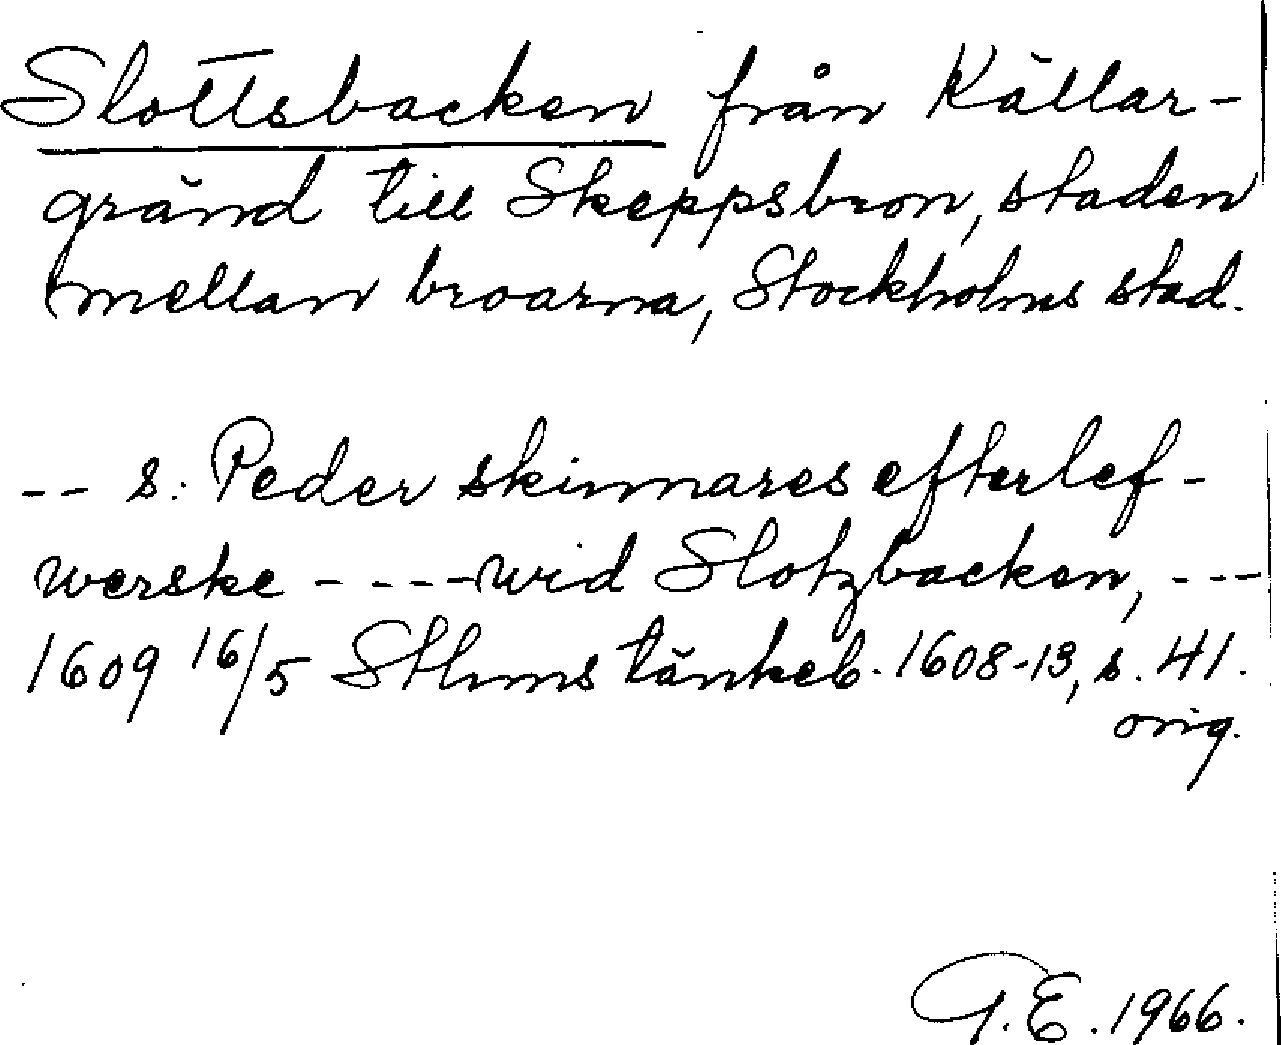 Slottsbacken från Källar-
gränd till Skeppsbron, staden
mellan broarna, Stockholms stad.
-- s: Peder skinnares efterlef-
werske - ---wid Slotzbacken, ---
1609 16/5 Sthms tänkeb. 1608-13, s. 41.
orig.
G.E. 1966.